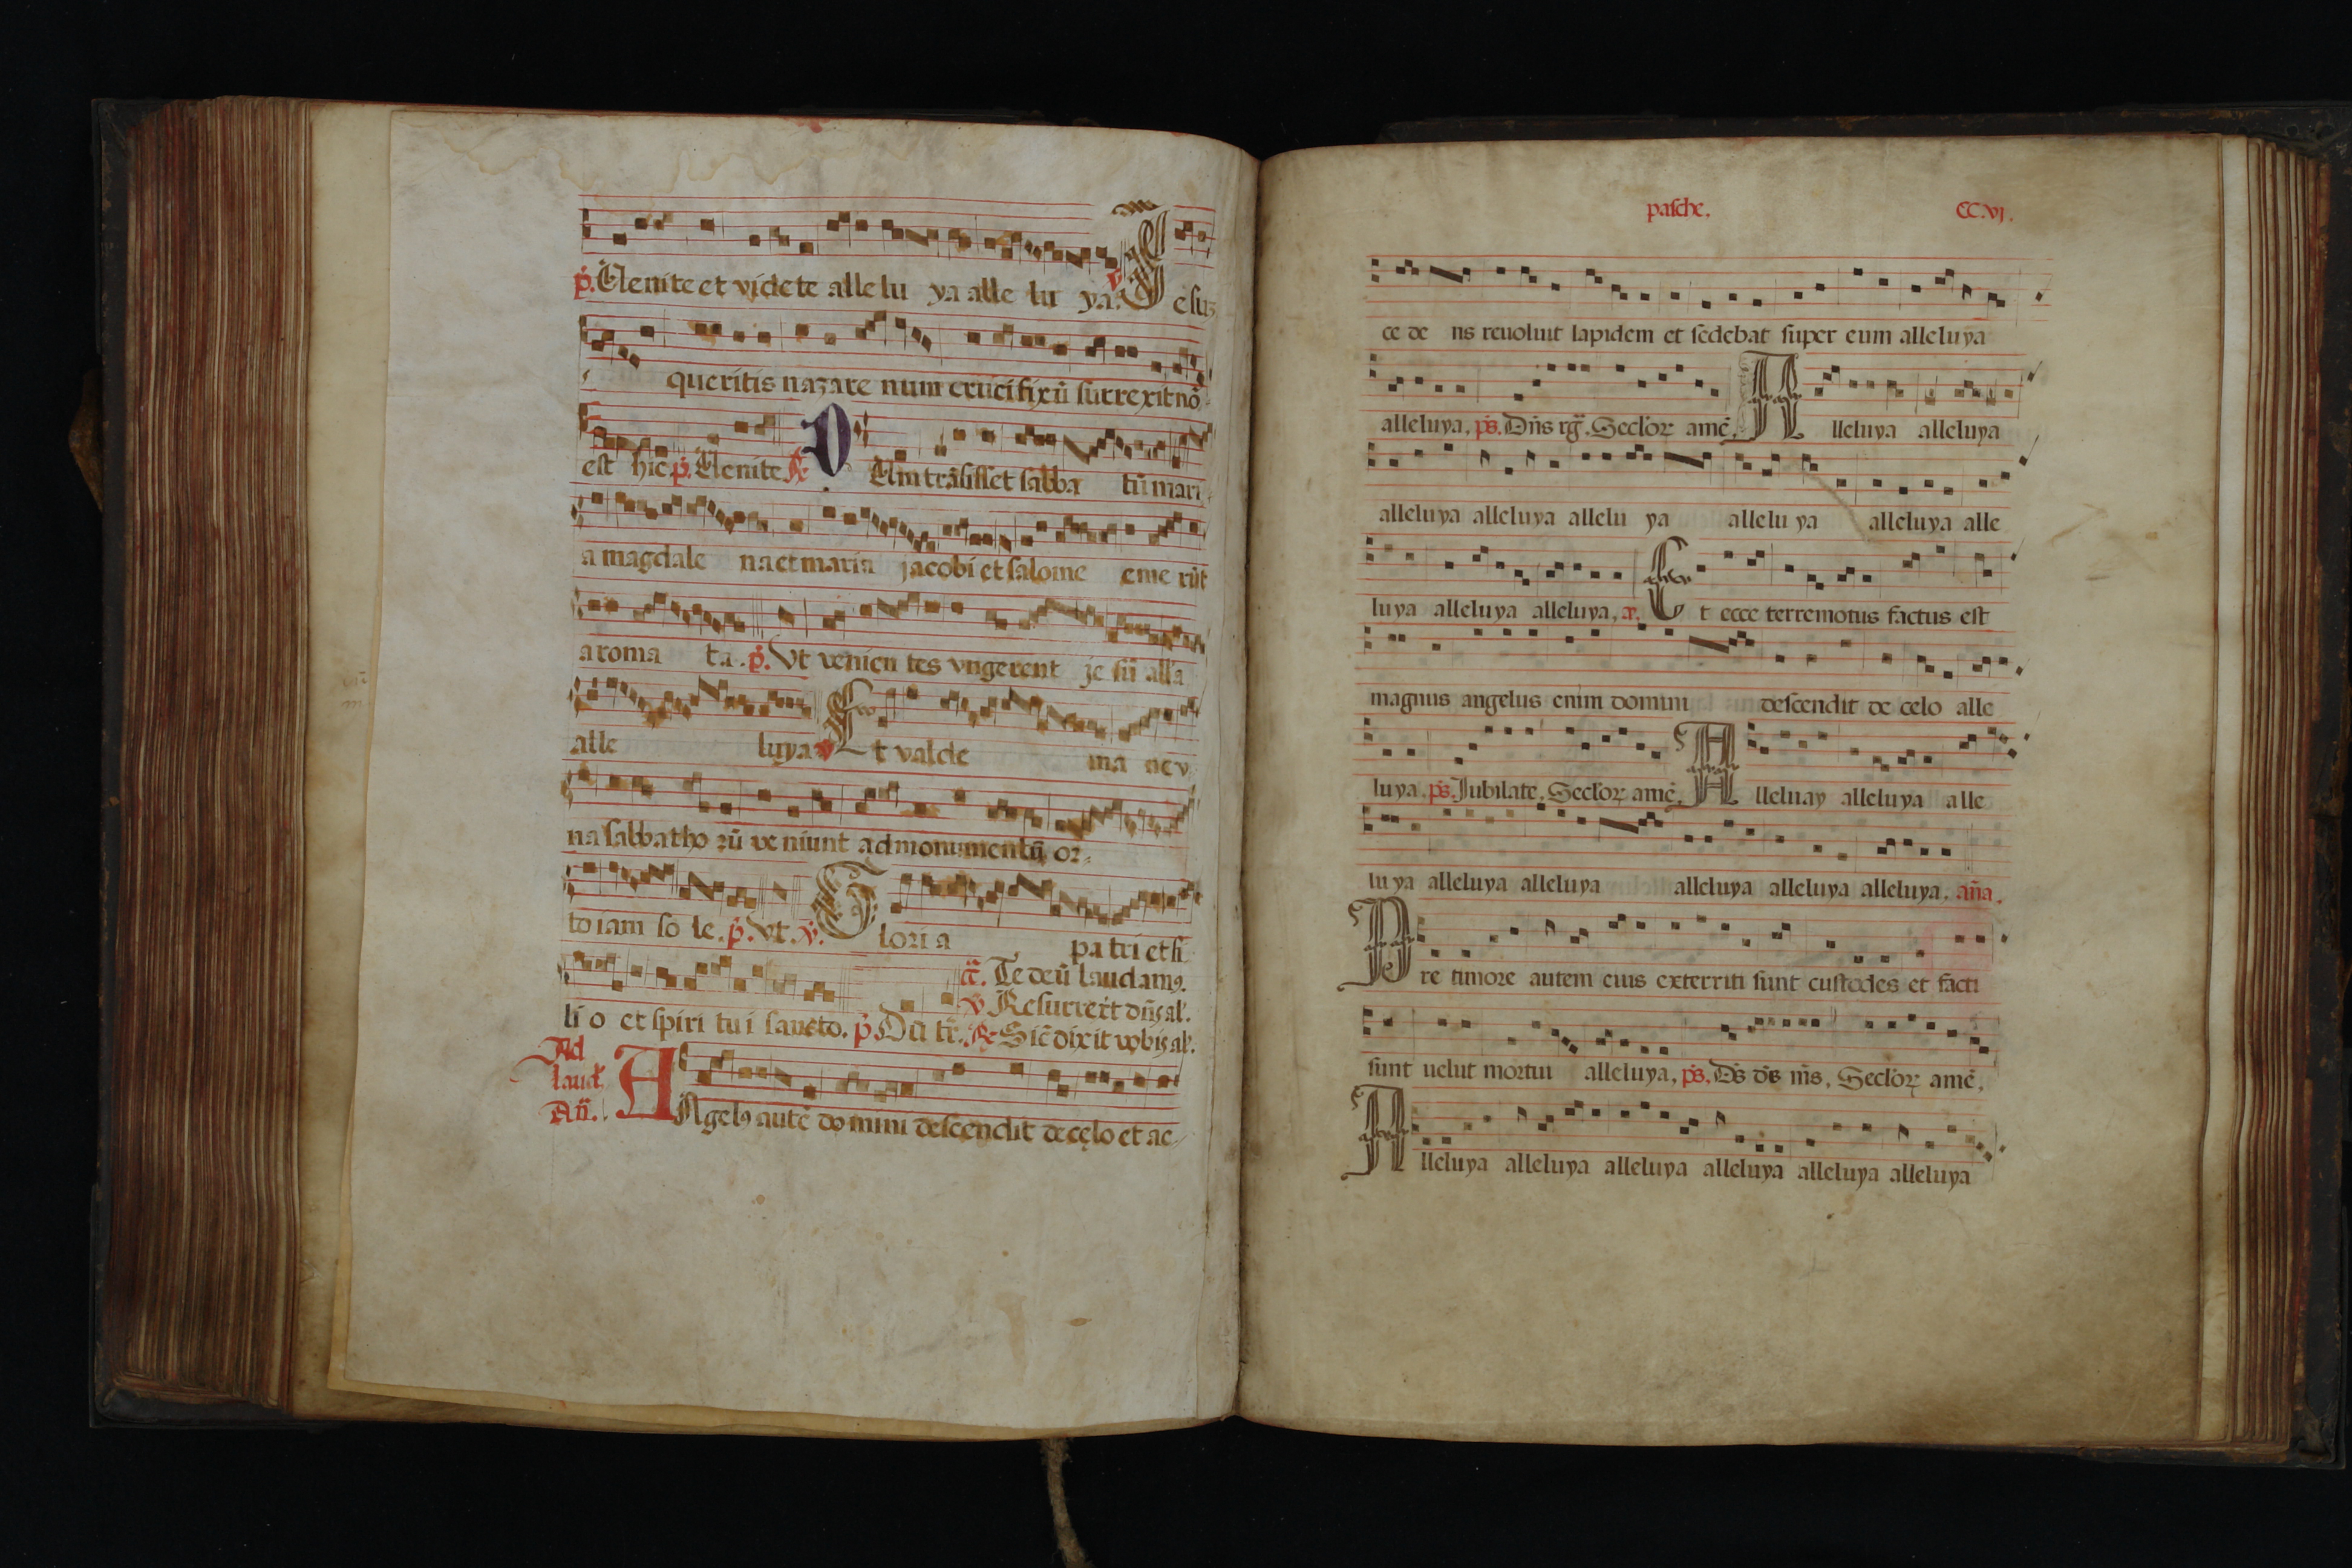 p̃. Uenite et videte alle lu ya alle lu ya. v Jesuz
queritis nazare num crucifixũ surrexit nõ
est hic p̃. Uenite ꝶ D Um trãsisset sabba tũ mari
a magdale na et maria jacobi et salome eme rũt
aroma ta. p̃. Vt venien tes vngerent je sũ all'a
alle luya v Et valde ma ne v
na sabbatho rũ ve niunt ad monumentũ or
to iam so le. p̃. Vt. ṽ. Gloria pa tri et fi
ã. Te deũ laudamꝰ.
v̄ Resurrexit dñs al'.
li o et spiri tui sancto. p̃ Dũ tr̃. ꝶ Sic̃ dixit vobis al'.
Ad
laud.
Añ. ANgelꝰ autẽ domini descendit de cęlo et ac
pasche. CC.vj.
ce de ns reuoluit lapidem et sedebat super eum alleluya
alleluya. ps̃. Dñs rg̃. Seclorꝝ amẽ. Alleluya alleluya
alleluya alleluya allelu ya allelu ya alleluya alle
luya alleluya alleluya. a. Et ecce terremotus factus est
magnus angelus enim domini descendit de celo alle
luya. ps̃. Jubilate. Seclorꝝ amẽ. Alleluay alleluya alle
lu ya alleluya alleluya alleluya alleluya alleluya. añа.
Pre timore autem eius exterriti sunt custodes et facti
sunt uelut mortui alleluya. ps̃. Ds̃ ds̃ ms̃. Seclorꝝ amẽ.
Alleluya alleluya alleluya alleluya alleluya alleluya